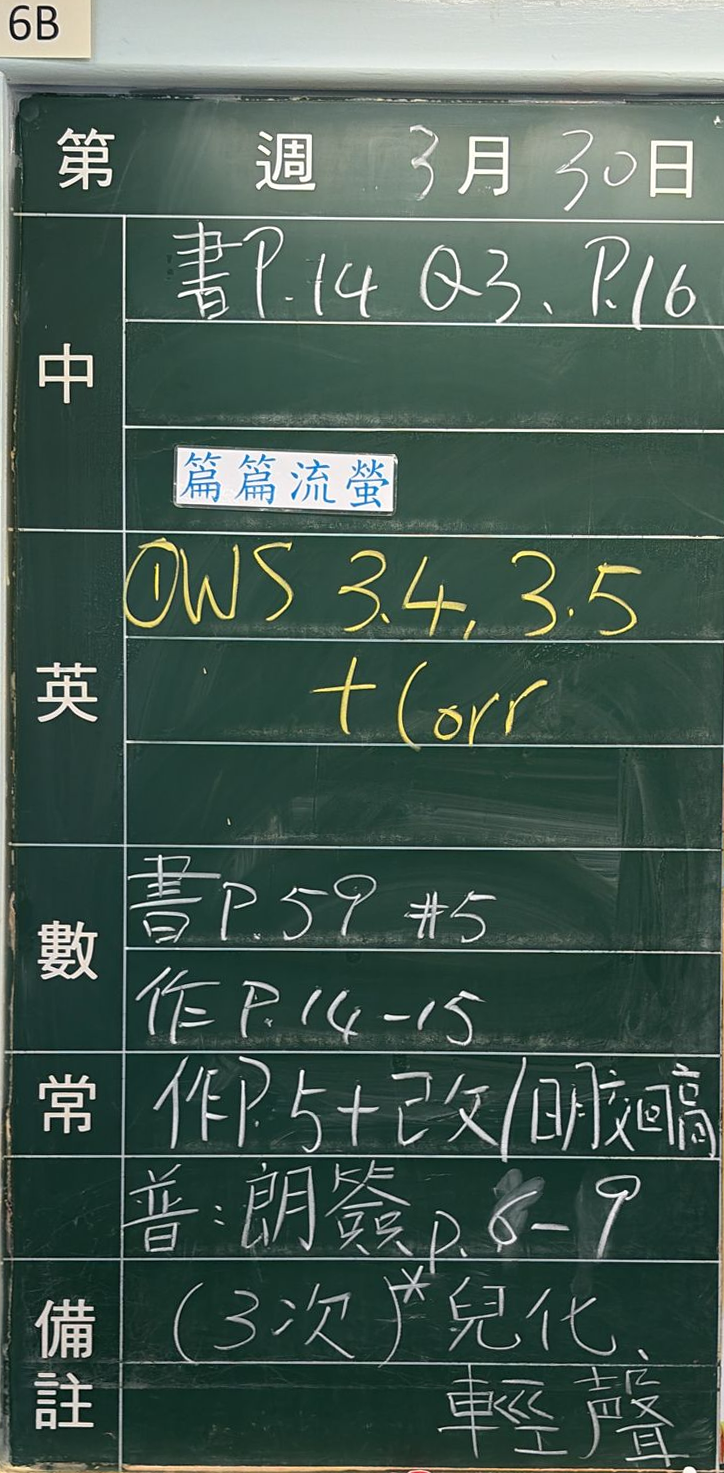 6B
第 週 3月30日
中
書P.14 Q3、P.16
篇篇流螢
英
①WS 3.4, 3.5
+Corr
數
書P.59 #5
作P.14-15
常
作P.5+改/明交回
普：朗簽p.6-9
備註
(3次)*兒化、
輕聲